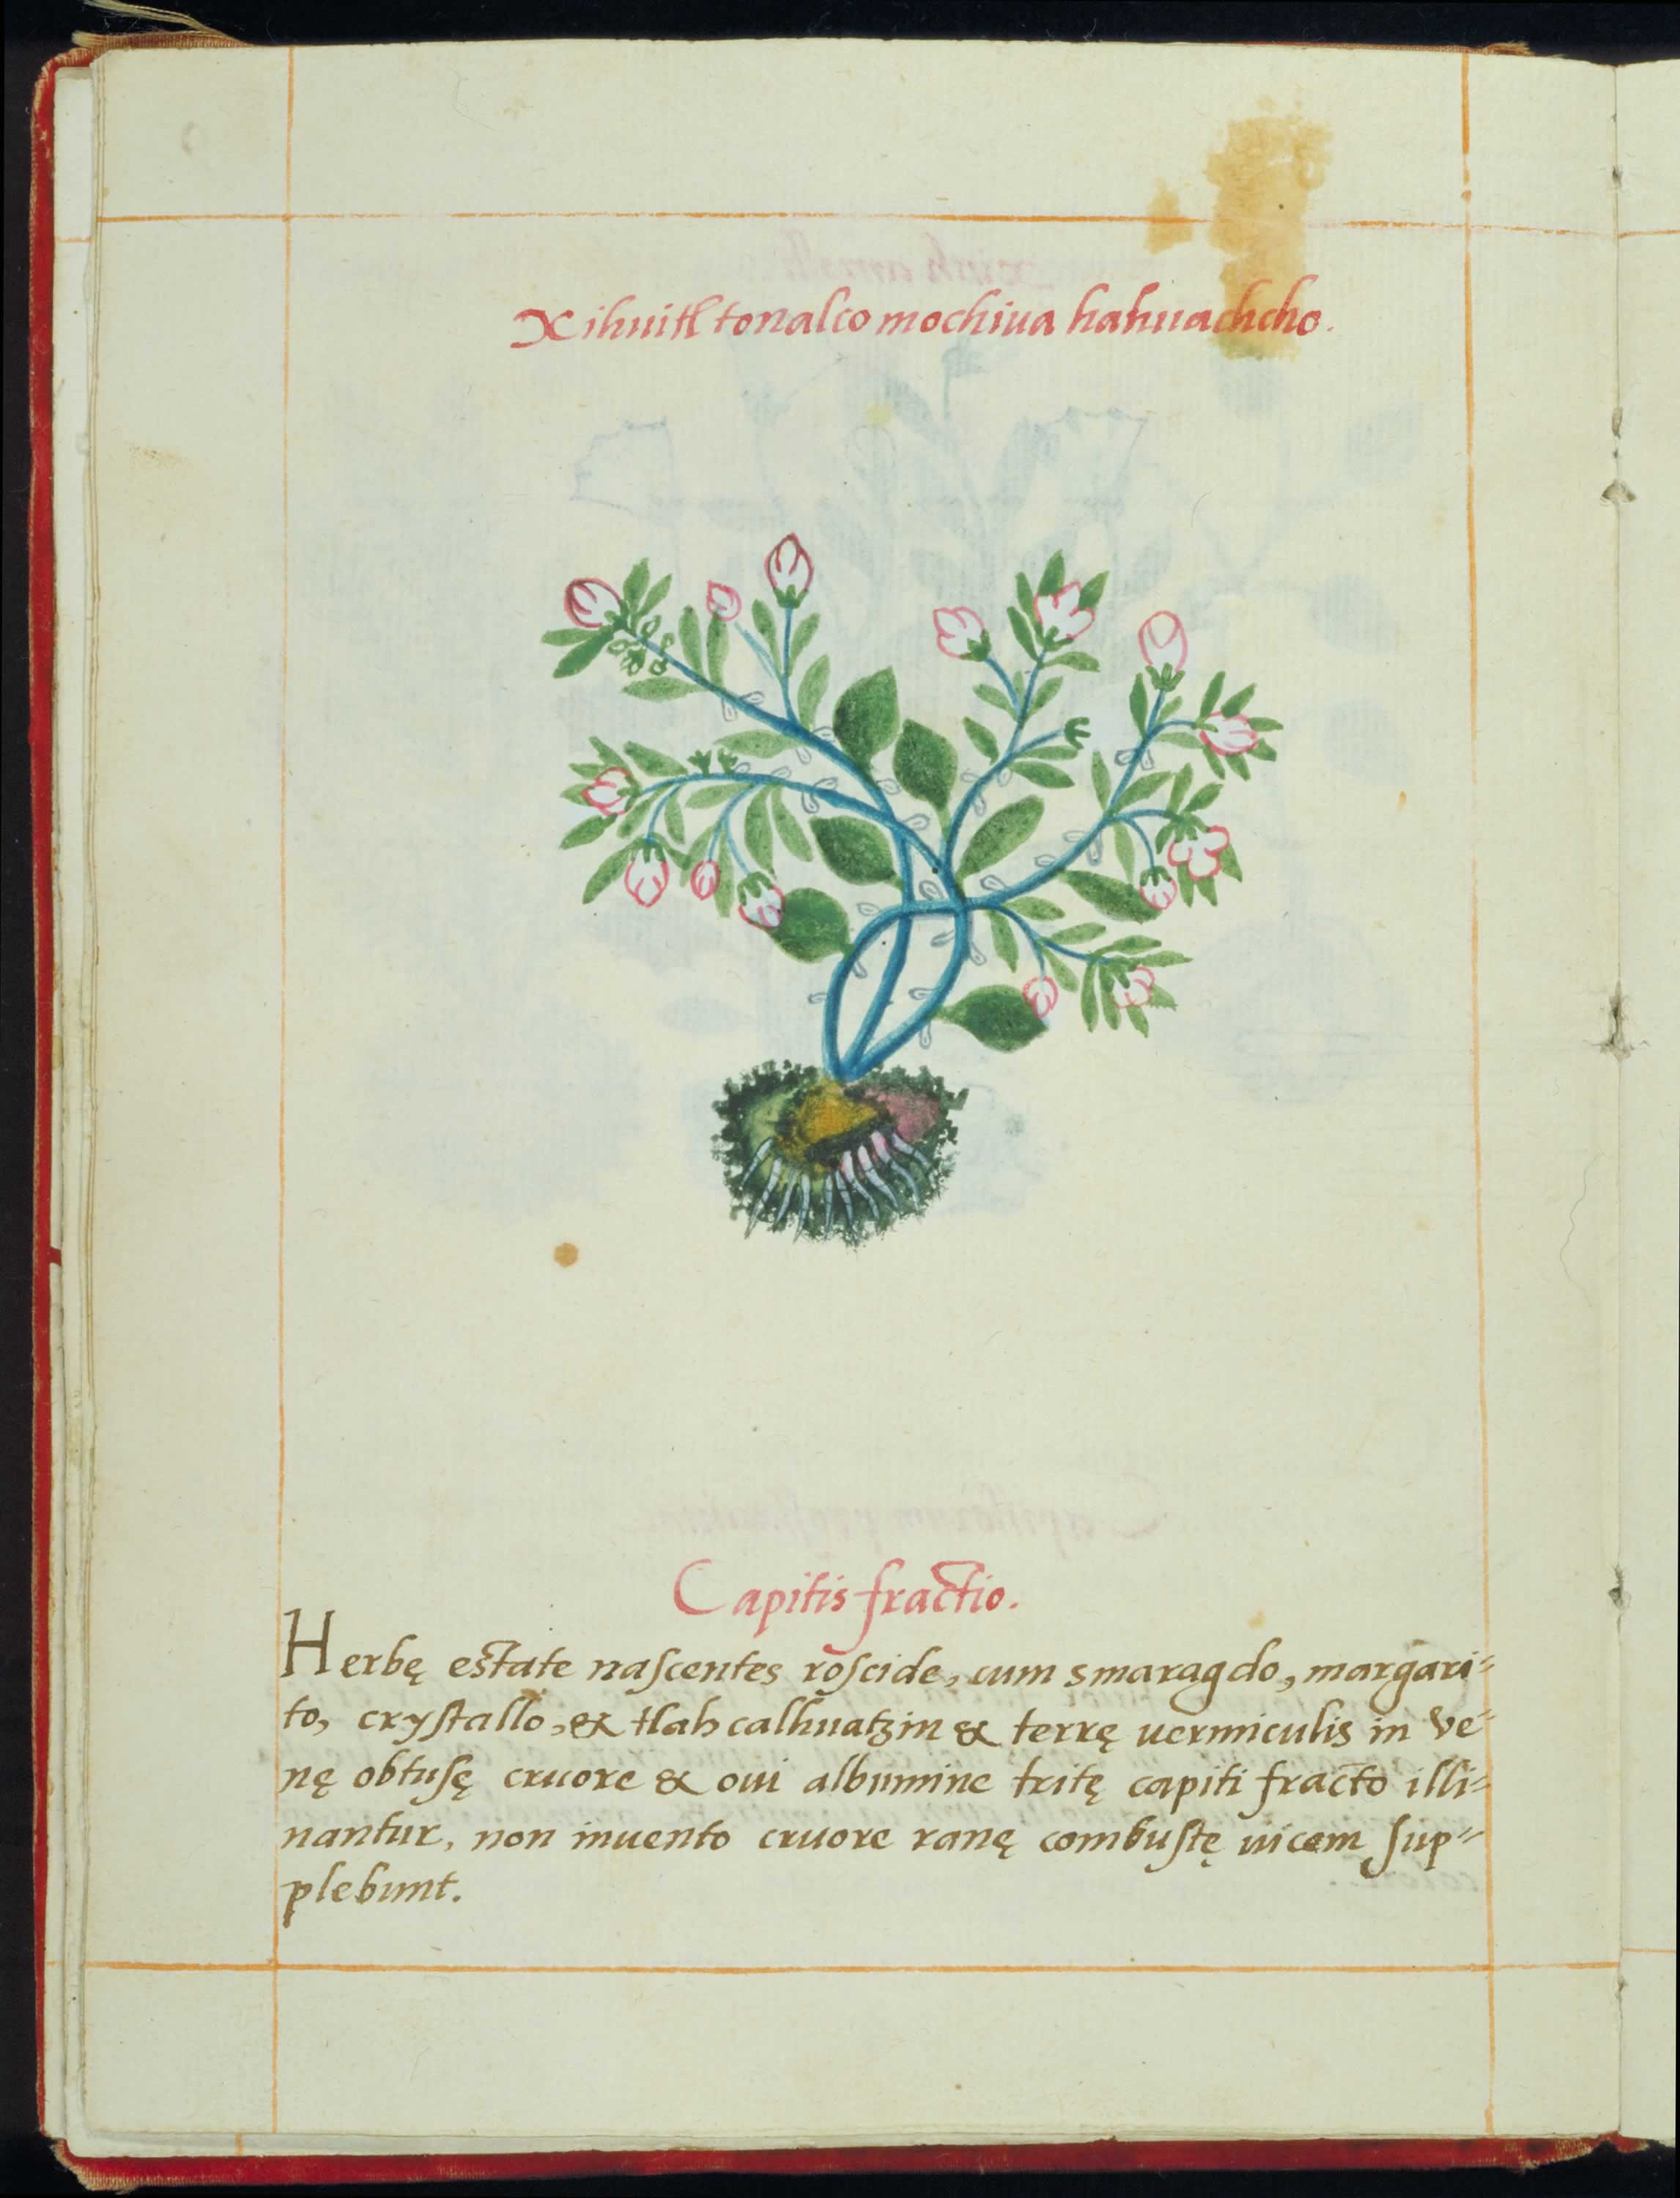 Xihuitl tonalco mochiua hahuachcho.
Capitis fractio.
Herbę estate nascentes roscide, cum smaragdo, margari=
to, crystallo, & tlahcalhuatzin & terrę uermiculis in ve=
nę obtusę cruore & oui albumine tritę capiti fracto illi=
nantur, non inuento cruore ranę combustę uicem sup=
plebunt.